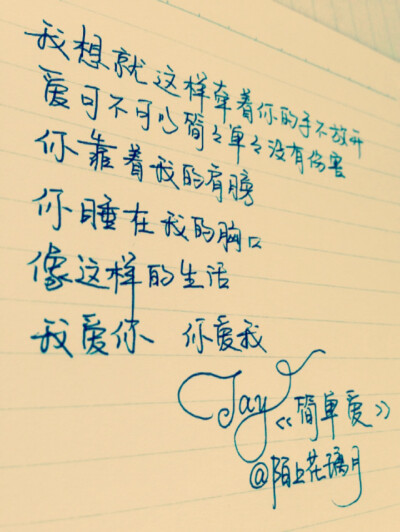 我想就这样牵着你的手不放开
爱可不可以简々单々没有伤害
你靠着我的肩膀
你睡在我的胸口
像这样的生活
我爱你 你爱我
Jay《简单爱》
@陌上花璃月